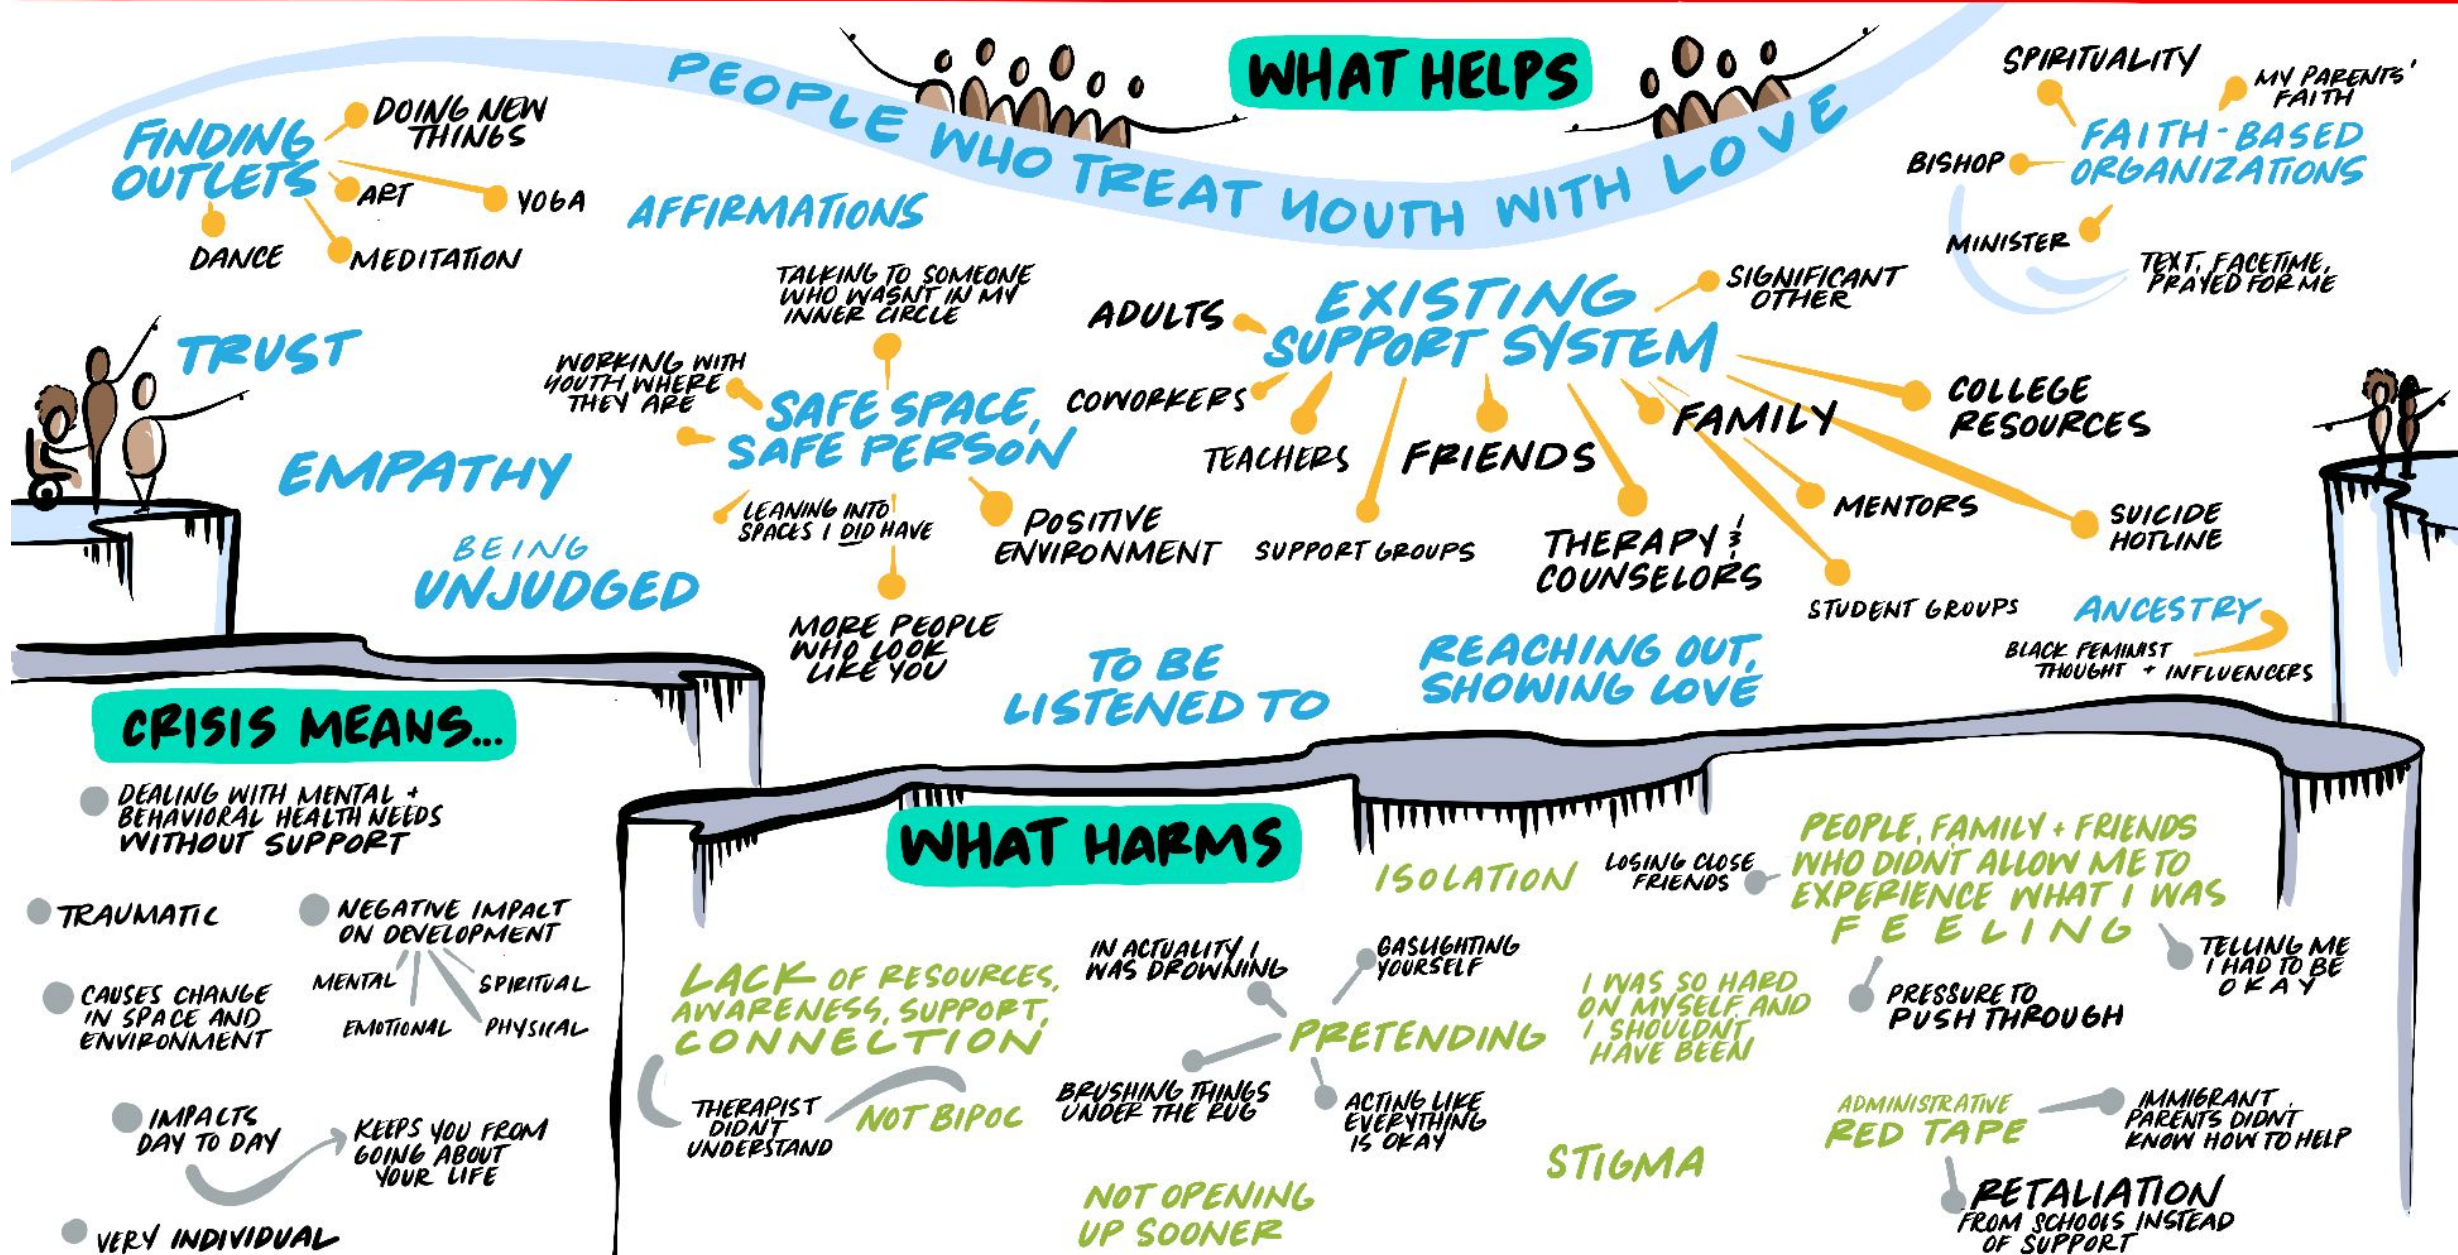 WHAT HELPS
PEOPLE WHO TREAT YOUTH WITH LOVE
FINDING
OUTLETS
DOING NEW
THINGS
ART
YOGA
DANCE
MEDITATION
AFFIRMATIONS
TRUST
EMPATHY
BEING
UNJUDGED
TALKING TO SOMEONE
WHO WASN'T IN MY
INNER CIRCLE
WORKING WITH
YOUTH WHERE
THEY ARE
SAFE SPACE,
SAFE PERSON
LEANING INTO
SPACES I DID HAVE
POSITIVE
ENVIRONMENT
MORE PEOPLE
WHO LOOK
LIKE YOU
EXISTING
SUPPORT SYSTEM
ADULTS
COWORKERS
TEACHERS
SUPPORT GROUPS
FRIENDS
THERAPY &
COUNSELORS
FAMILY
MENTORS
STUDENT GROUPS
SIGNIFICANT
OTHER
COLLEGE
RESOURCES
SUICIDE
HOTLINE
SPIRITUALITY
MY PARENTS'
FAITH
FAITH-BASED
ORGANIZATIONS
BISHOP
MINISTER
TEXT, FACETIME,
PRAYED FOR ME
TO BE
LISTENED TO
REACHING OUT,
SHOWING LOVE
ANCESTRY
BLACK FEMINIST
THOUGHT + INFLUENCERS
CRISIS MEANS...
DEALING WITH MENTAL +
BEHAVIORAL HEALTH NEEDS
WITHOUT SUPPORT
TRAUMATIC
NEGATIVE IMPACT
ON DEVELOPMENT
MENTAL
EMOTIONAL
PHYSICAL
SPIRITUAL
CAUSES CHANGE
IN SPACE AND
ENVIRONMENT
IMPACTS
DAY TO DAY
KEEPS YOU FROM
GOING ABOUT
YOUR LIFE
VERY INDIVIDUAL
WHAT HARMS
LACK OF RESOURCES,
AWARENESS, SUPPORT,
CONNECTION
THERAPIST
DIDN'T
UNDERSTAND
NOT BIPOC
IN ACTUALITY I
WAS DROWNING
GASLIGHTING
YOURSELF
PRETENDING
BRUSHING THINGS
UNDER THE RUG
ACTING LIKE
EVERYTHING
IS OKAY
NOT OPENING
UP SOONER
ISOLATION
I WAS SO HARD
ON MYSELF AND
I SHOULDN'T
HAVE BEEN
STIGMA
LOSING CLOSE
FRIENDS
PEOPLE, FAMILY + FRIENDS
WHO DIDN'T ALLOW ME TO
EXPERIENCE WHAT I WAS
FEELING
PRESSURE TO
PUSH THROUGH
TELLING ME
I HAD TO BE
OKAY
ADMINISTRATIVE
RED TAPE
IMMIGRANT
PARENTS DIDN'T
KNOW HOW TO HELP
RETALIATION
FROM SCHOOLS INSTEAD
OF SUPPORT